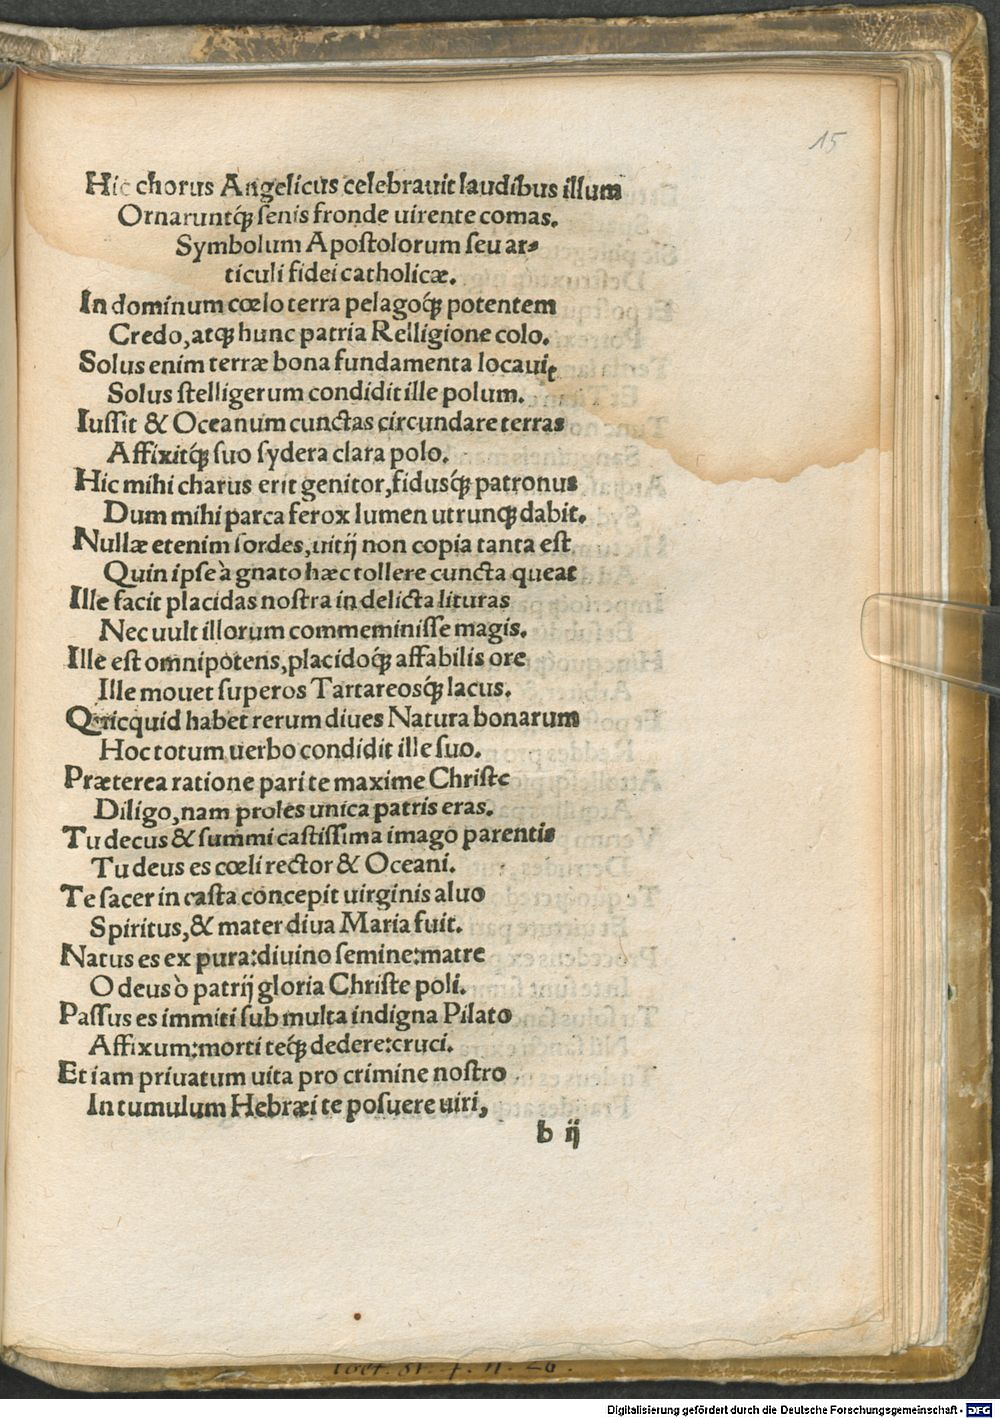 15
Hic chorus Angelicus celebrauit laudibus illum
Ornaruntq́ꝫ senis fronde uirente comas.
Symbolum Apostolorum seu ar-
ticuli fidei catholicæ.
In dominum cœlo terra pelagoq́ꝫ potentem
Credo, atqꝫ hunc patria Relligione colo.
Solus enim terræ bona fundamenta locauit
Solus stelligerum condidit ille polum.
Iussit & Oceanum cunctas circundare terras
Affixitq́ꝫ suo sydera clara polo.
Hic mihi charus erit genitor, fidusq́ꝫ patronus
Dum mihi parca ferox lumen utrunqꝫ dabit.
Nullæ etenim sordes, uitij non copia tanta est
Quin ipse à gnato hæc tollere cuncta queat
Ille facit placidas nostra in delicta lituras
Nec uult illorum commeminisse magis.
Ille est omnipotens, placidoq́ꝫ affabilis ore
Ille mouet superos Tartareosq́ꝫ lacus.
Quicquid habet rerum diues Natura bonarum
Hoc totum uerbo condidit ille suo.
Præterea ratione pari te maxime Christe
Diligo, nam proles unica patris eras.
Tu decus & summi castissima imago parentis
Tu deus es cœli rector & Oceani.
Te sacer in casta concepit uirginis aluo
Spiritus, & mater diua Maria fuit.
Natus es ex pura: diuino semine: matre
O deus ò patrij gloria Christe poli.
Passus es immiti sub multa indigna Pilato
Affixum: morti teq́ꝫ dedere: cruci.
Et iam priuatum uita pro crimine nostro
In tumulum Hebræi te posuere uiri,
b ij
Digitalisierung gefördert durch die Deutsche Forschungsgemeinschaft - DFG